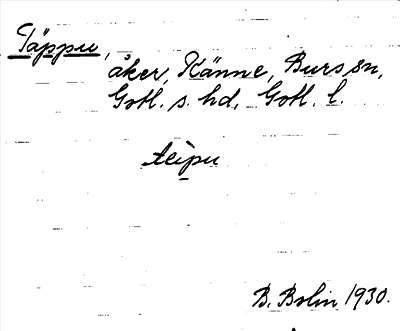 Täppu,
åker, Känne, Burs sn,
Gotl. s. hd, Gotl. l.
tèipu
B. Bolin 1930.